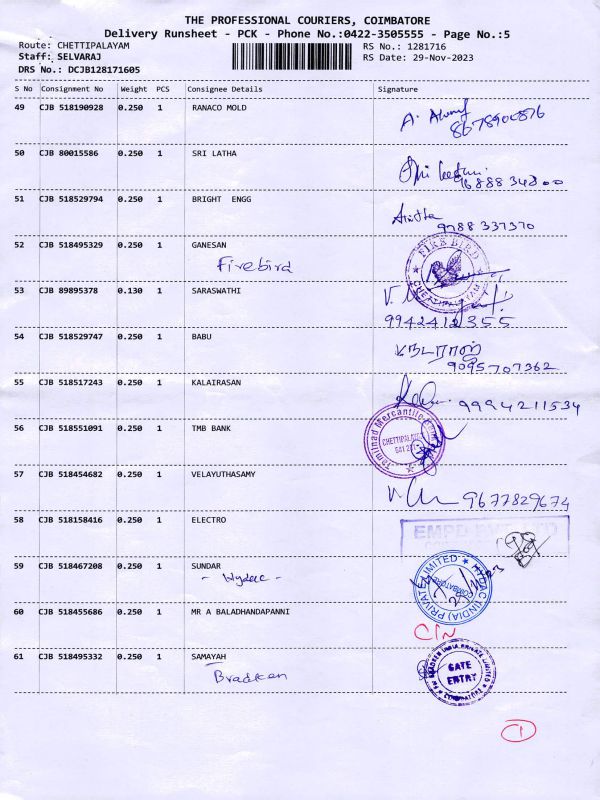 THE PROFESSIONAL COURIERS, COIMBATORE
Delivery Runsheet - PCK - Phone No.:0422-3505555 - Page No.:5
Route: CHETTIPALAYAM RS No.: 1281716
Staff: SELVARAJ RS Date: 29-Nov-2023
DRS No.: DCJB128171605
S No Consignment No Weight PCS Consignee Details Signature
49 CJB 518190928 0.250 1 RANACO MOLD
50 CJB 80015586 0.250 1 SRI LATHA
51 CJB 518529794 0.250 1 BRIGHT ENGG
9788 337370
52 CJB 518495329 0.250 1 GANESAN
Firebird
FIRE BIRD
CHETTIPALAYAM
53 CJB 89895378 0.130 1 SARASWATHI
9942412355
54 CJB 518529747 0.250 1 BABU
நடராஜ்
9095707362
55 CJB 518517243 0.250 1 KALAIRASAN
9994211534
56 CJB 518551091 0.250 1 TMB BANK
Tamilnad Mercantile Bank
CHETTIPALAYAM
641 201
57 CJB 518454682 0.250 1 VELAYUTHASAMY
9677829674
58 CJB 518158416 0.250 1 ELECTRO
59 CJB 518467208 0.250 1 SUNDAR
- Wydac -
(INDIA) PRIVATE LIMITED
COIMBATORE
60 CJB 518455686 0.250 1 MR A BALADHANDAPANNI
C/N
61 CJB 518495332 0.250 1 SAMAYAH
Bradken
BRADKEN INDIA PRIVATE LIMITED
GATE
ENTRY
COIMBATORE
1